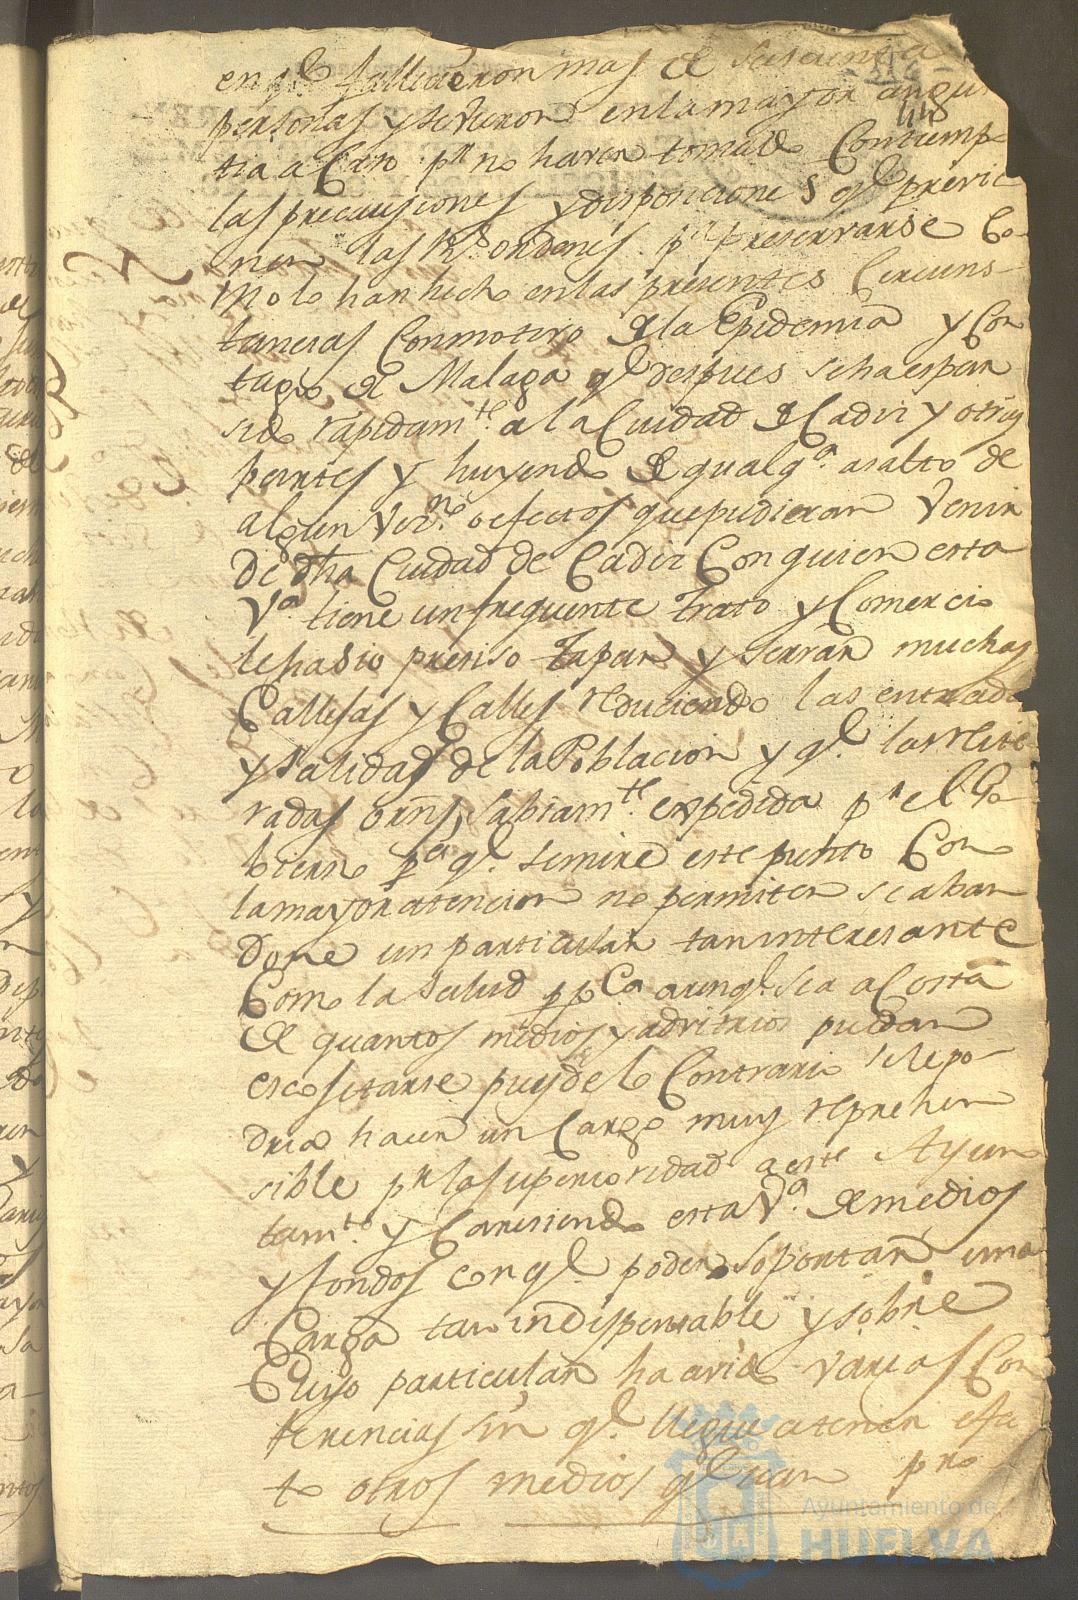 en qe. fallecieron mas de seiscientas
personas y se vieron en la mayor angus
tia a Caso pr. no haver tomado Contiemp
las precausiones y disposiciones qe. previe
nen las Rs. ordenes pa. preservarse Co-
mo lo han hecho en las presentes Circuns-
tancias Con motivo de la Epidemia y Con
tagio de Malaga qe. despues se ha espar
sido rapidamte. a la Ciudad de Cadiz y otras
partes y huyendo de qualqa. asalto de
algun Vecno. o efectos que pudieran Venir
De dha Ciudad de Cadiz Con quien esta
Va. tiene un frequente trato y Comercio
le ha sido preciso tapar y serrar muchas
Callejas y Calles reduciendo las entradas
y salidas de la Poblacion y qe. las reite
radas orns. sabiamte. expedida pr. el Go-
bierno pa. qe. se mire este punto Con
la mayor atencion no permiten se aban
Done un particular tan interesante
Como la salud ppca. aunqe. sea a Costa
de quantos medios y advitrios puedan
escositarse pues de lo Contrario se le po-
dria hacer un Cargo muy reprehen
sible pr. la superioridad a este Ayun
tamto. y Caresiendo esta Va. de medios
y fondos con qe. poder soportar una
Carga tan indispensable y sobre
Cuyo particular ha avido varias Con
ferencias sin qe. llegue a tener efec
to otros medios qe. pro
Ayuntamiento de
HUELVA